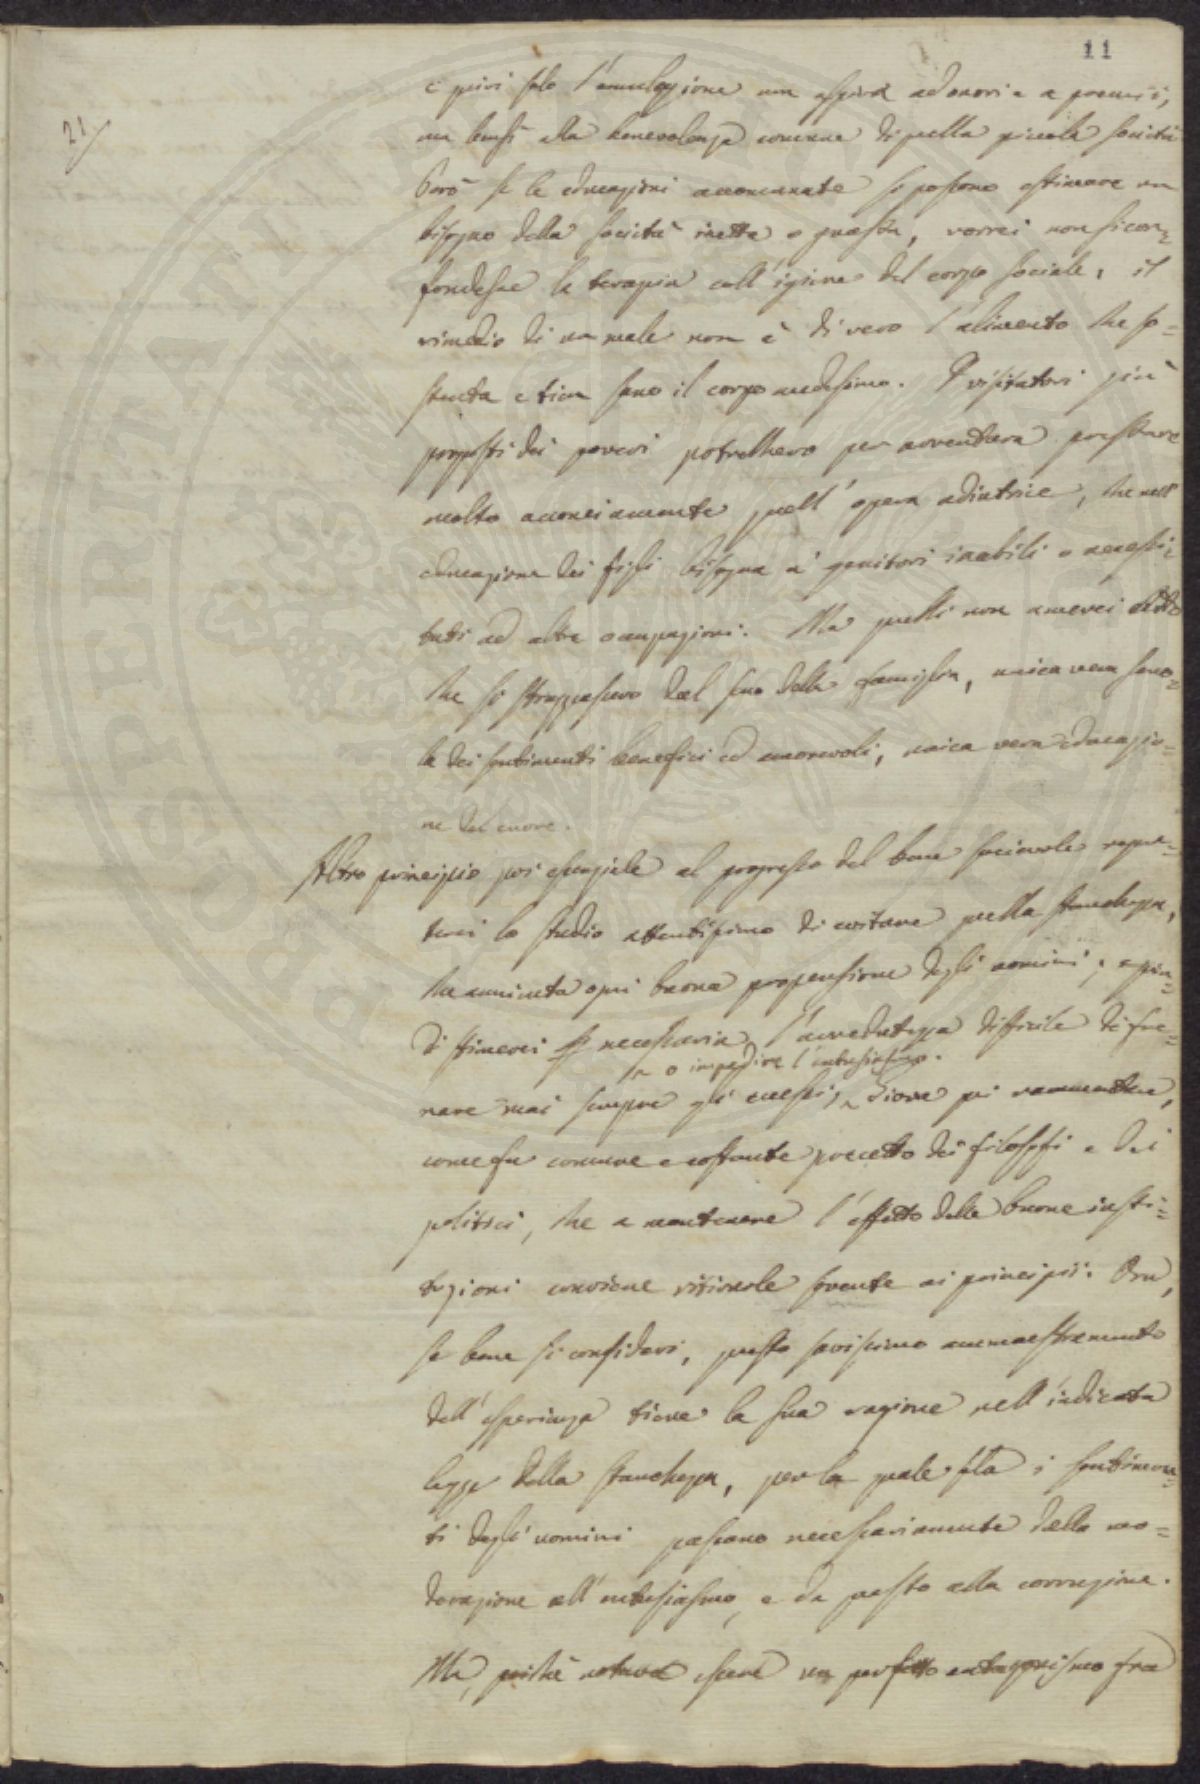 11
21/
e quivi solo l'emulazione non aspira ad onori e a premii,
ma bensì alla benevolenza comune di quella piccola società
Però se le educazioni accomunate si possono estimare un
bisogno della società inetta o guasta, vorrei non si con=
fondesse la terapia coll'igiene del corpo sociale, il
rimedio di un male non è di vero l'alimento che so=
stenta e tien sano il corpo medesimo. I visitatori più
proposti dei poveri potrebbero per avventura prestare
molto acconciamente quell'opera adiutrice, che nell'
educazione dei figli bisogna a' genitori inabili o necessi=
tati ad altre occupazioni. Ma quelli non amerei
che si strappassero dal seno della famiglia, unica vera scuo=
la dei sentimenti benefici ed amorevoli, unica vera educazio=
ne del cuore.
Altro principio poi essenziale al progresso del bene socievole repu=
terei lo studio attentissimo di evitare quella stanchezza,
che annienta ogni buona propensione degli uomini; e quin=
di stimerei necessaria l'avvedutezza difficile di fre=
^ o impedire l'entusiasmo.
nare mai sempre gli eccessi, ^ Giova qui rammentare,
come fu comune e costante precetto dei filosofi e dei
politici, che a mantenere l'effetto delle buone insti=
tuzioni conviene ritirarle sovente ai principii. Ora,
se bene si consideri, questo savissimo ammaestramento
dell'esperienza tiene la sua ragione nell'indicata
legge della stanchezza, per la quale sola i sentimen=
ti degli uomini passano necessariamente dalla mo=
derazione all'entusiasmo, e da questo alla corruzione.
Ma, poichè essere un perfetto antagonismo fra